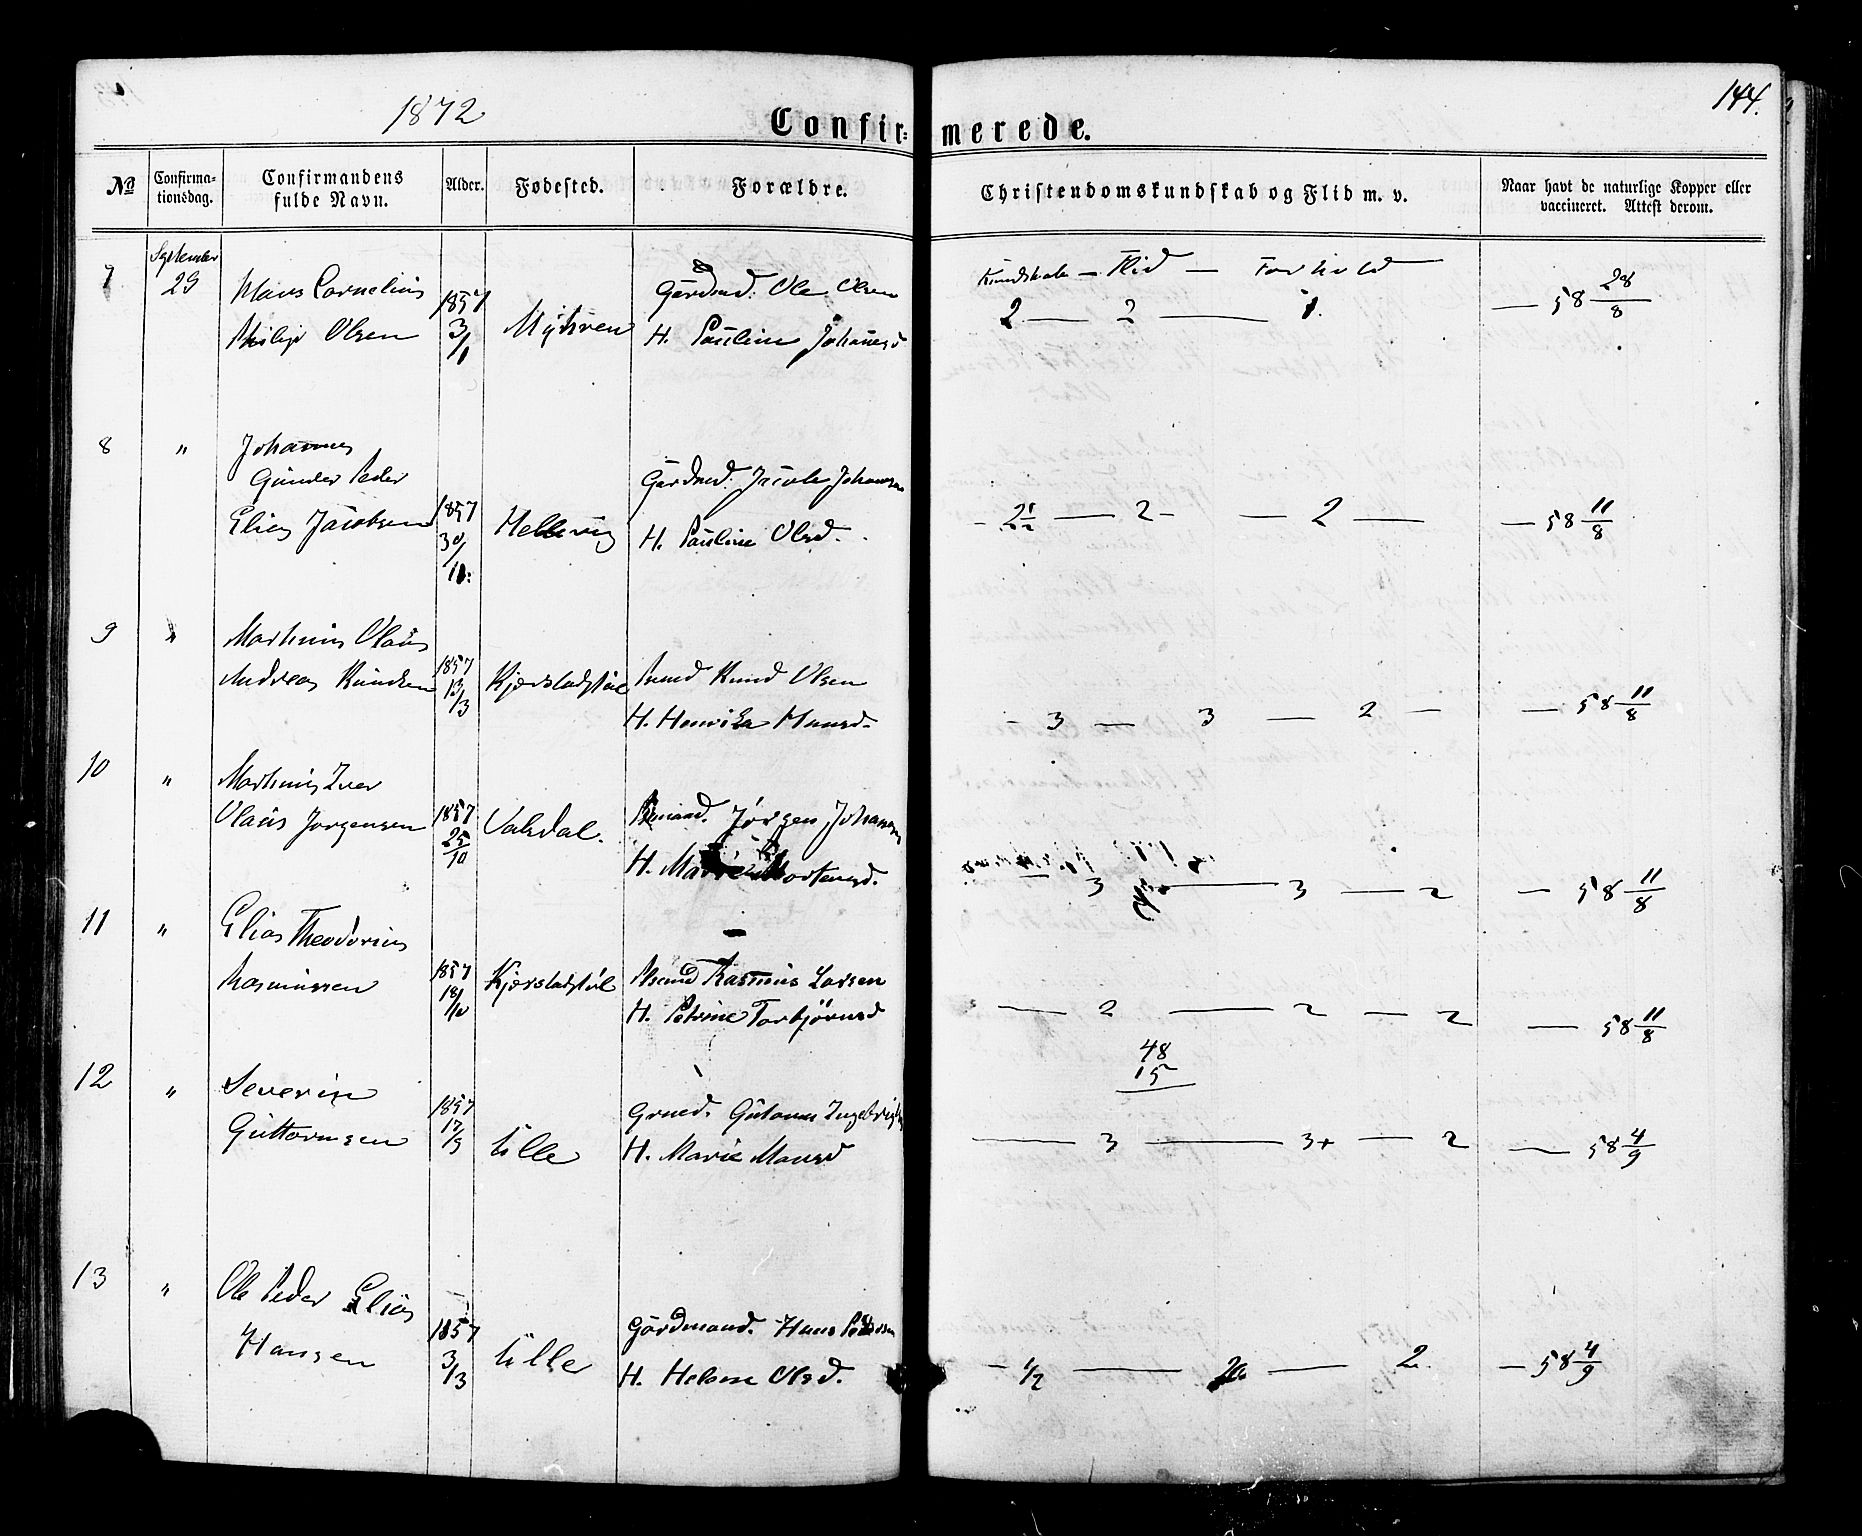 1872
144.
Confir: merede.
No
Confirma-
tionsdag.
Confirmandens
fulde Navn.
Alder.
Fødested.
Forældre.
Christendomskundskab og Flid m. v.
Naar havt de naturlige Kopper eller
vaccineret. Attest derom.
7
September
29
Hans Cornelius
Philip Olsen
1857
3/1
Myhren
Gårdmd. Ole Olsen
H. Pauline Johannesd
Kundskab — Flid — Forhold
2 — 2 — 1.
— 58 28/8
8
"
Johannes
Gunder Peder
Elias Jacobsen
1857
30/11:
Hellevig
Gårdmd. Jacob Johannesen
H. Pauline Olsd.
- 2 1/2 — 2 - — 2 —
— 58 11/8
9
"
Martinius Olaus
Andreas Knudsen
1857
13/3
Kjerstadstøl
Knud Olsen
H. Henrika Hansd.
- 3 — 3 — 2 —
— 58 11/8
10
"
Martinus Iver
Olaus Jørgensen
1857
25/10
Valsdal.
Jørgen Johannesen
H. Mortensd.
3 — 3 — 2
— 58 11/8
11
"
Elias Theodorius
Rasmussen
1857
18/10
Kjerstadstøl
Rasmus Larsen
H. Petrine Torbjørnsd
— 2 — 2 — 2
— 58 11/8
48
15
12
"
Severin
Guttormsen
1857
17/9
Ulle
Grmd. Guttorm Ingebrigtsen
H. Marie Monsd
— 3 — 3+ — 2
— 58 4/9
13
"
Ole Peder Elias
Hansen
1857
3/3
Ulle
Gårdmand. Hans Pedersen
H. Helene Olsd.
- 1/2 — — 2.
— 58 4/9